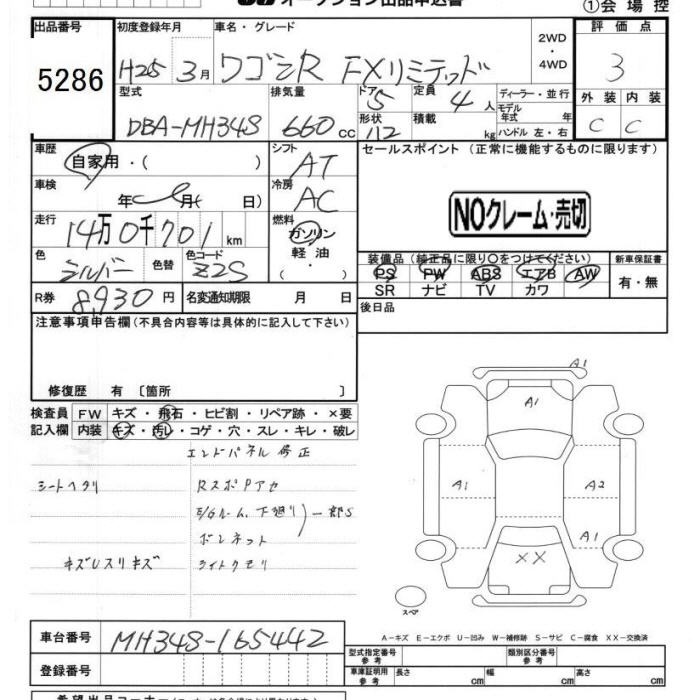 オークション出品申込書
①会場控
出品番号 初度登録年月 車名・グレード 評価点
5286 H25 3月 ワゴンR FXリミテッド 2WD・4WD 3
型式 排気量 ドア 5 定員 4人 ディーラー・並行 外装 内装
DBA-MH34S 660cc 形状 112 積載 kg モデル年式 年 ハンドル 左・右 C C
車歴 自家用・( ) シフト AT セールスポイント (正常に機能するものに限ります)
車検 年 月( 日) 冷房 AC
NOクレーム・売切
走行 14万0千701km 燃料 ガソリン 軽油 ・( )
色 シルバー 色替 色コード Z2S
装備品 (純正品に限り〇をつけてください) 新車保証書
PS PW ABS エアB AW 有・無
SR ナビ TV カワ
R券 8,930円 名変通知期限 月 日
後日品
注意事項申告欄 (不具合内容等は具体的に記入して下さい)
修復歴 有 〔箇所 〕
検査員 FW キズ・飛石・ヒビ割・リペア跡・×要
記入欄 内装 キズ・汚レ・コゲ・穴・スレ・キレ・破レ
エンドパネル修正
シートヘタリ RスポPアセ
E/Gルーム、下廻リ)一部S
ボンネット
キズUスリキズ ライトクモリ
A1
A1
A1 A2
A1
XX
スペア
A−キズ E−エクボ U−凹み W−補修跡 S−サビ C−腐食 XX−交換済
車台番号 MH34S-165442
型式指定番号 参考 類別区分番号 参考
登録番号 車庫証明用 参考 長さ cm 幅 cm 高さ cm